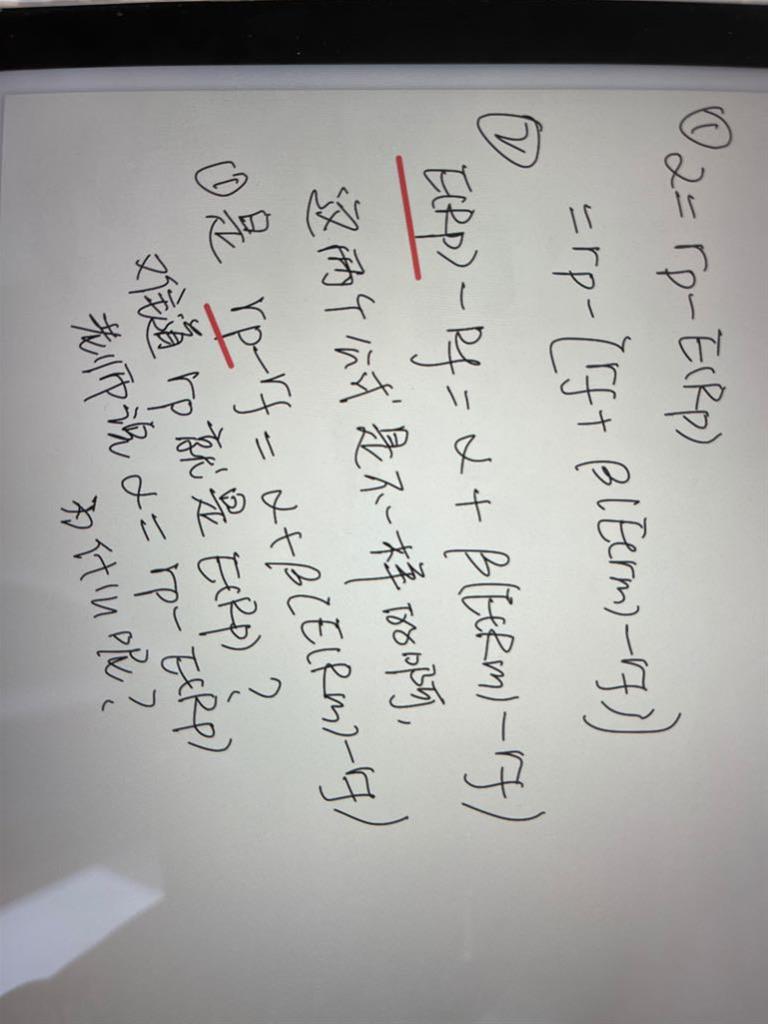 ① α = rp - E(Rp)
= rp - (rf + β(E(rm) - rf))
② E(Rp) - Rf = α + β(E(Rm) - rf)
这两个公式是不一样的啊,
①是 rp - rf = α + β(E(Rm) - rf)
难道 rp 就是 E(Rp)?
老师说 α = rp - E(Rp)
为什么呢?